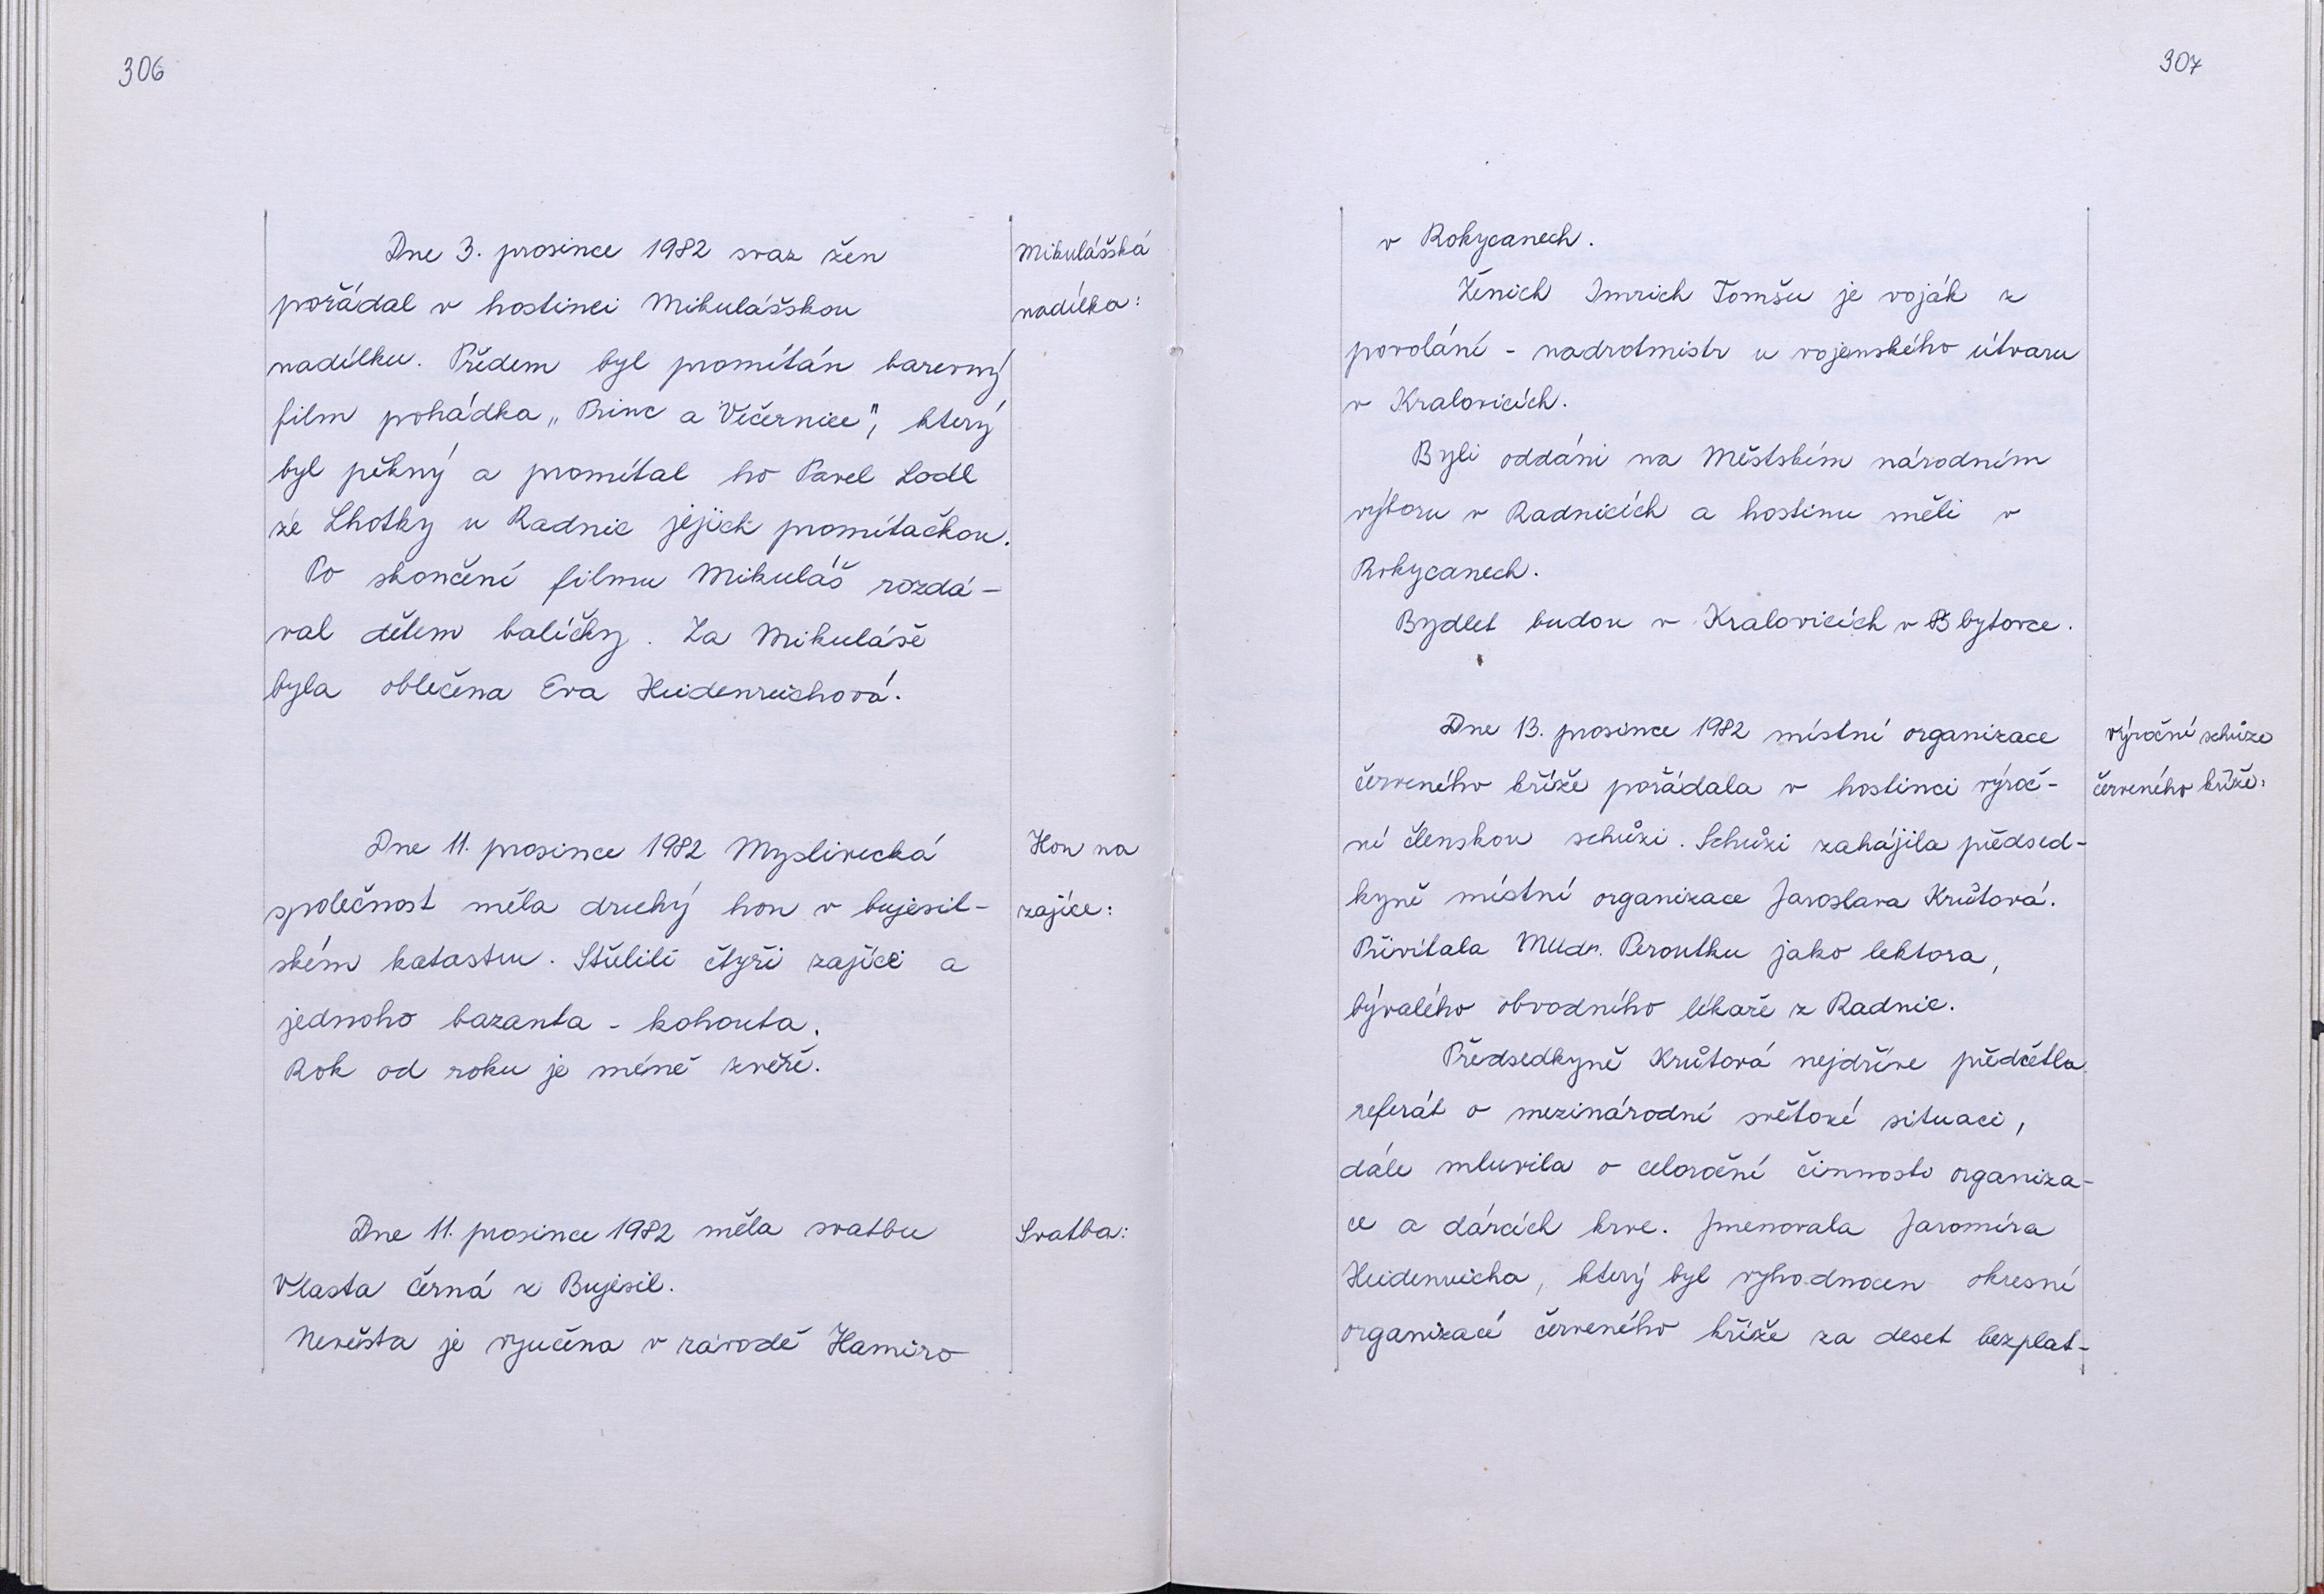 306
Dne 3. prosince 1982 svaz žen
pořádal v hostinci Mikulášskou
nadílku. Předem byl promítán barevný
film pohádka „Princ a Večernice", který
byl pěkný a promítal ho Pavel Lodl
ze Lhotky u Radnic jejich promítačkou.
Po skončení filmu Mikuláš rozdá-
val dětem balíčky. Za Mikuláše
byla oblečena Eva Heidenreichová.
Mikulášská
nadílka:
Dne 11. prosince 1982 Myslivecká
společnost měla druhý hon v bujesil-
ském katastru. Střelili čtyři zajíce a
jednoho bazanta - kohouta.
Rok od roku je méně zvěře.
Hon na
zajíce:
Dne 11. prosince 1982 měla svatbu
Vlasta Černá z Bujesil.
Nevěsta je vyučena v závodě Hamiro
Svatba:
307
v Rokycanech.
Ženich Imrich Tomšu je voják z
povolání - nadrotmistr u vojenského útvaru
v Kralovicích.
Byli oddáni na Městském národním
výboru v Radnicích a hostinu měli v
Rokycanech.
Bydlet budou v Kralovicích v B bytovce.
Dne 13. prosince 1982 místní organizace
červeného kříže pořádala v hostinci výroč-
ní členskou schůzi. Schůzi zahájila předsed-
kyně místní organizace Jaroslava Krůtová.
Přivítala MUdr. Peroutku jako lektora,
bývalého obvodního lékaře z Radnic.
Předsedkyně Krůtová nejdříve předčetla
referát o mezinárodní světové situaci,
dále mluvila o celoroční činnosti organiza-
ce a dárcích krve. Jmenovala Jaromíra
Heidenreicha, který byl vyhodnocen okresní
organizací červeného kříže za deset bezplat-
Výroční schůze
červeného kříže: